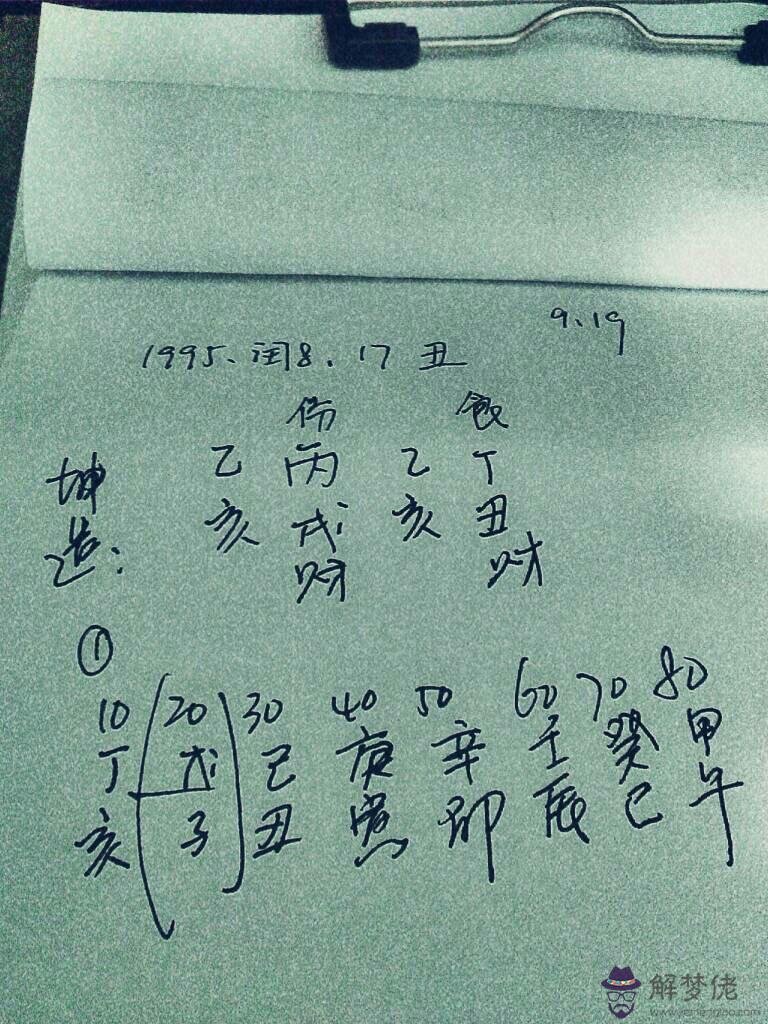 9.19
1995.闰8.17 丑
伤 食
坤造: 乙 丙 乙 丁
亥 戌 亥 丑
财 财
①
10 20 30 40 50 60 70 80
丁 戊 己 庚 辛 壬 癸 甲
亥 子 丑 寅 卯 辰 巳 午
解梦佬